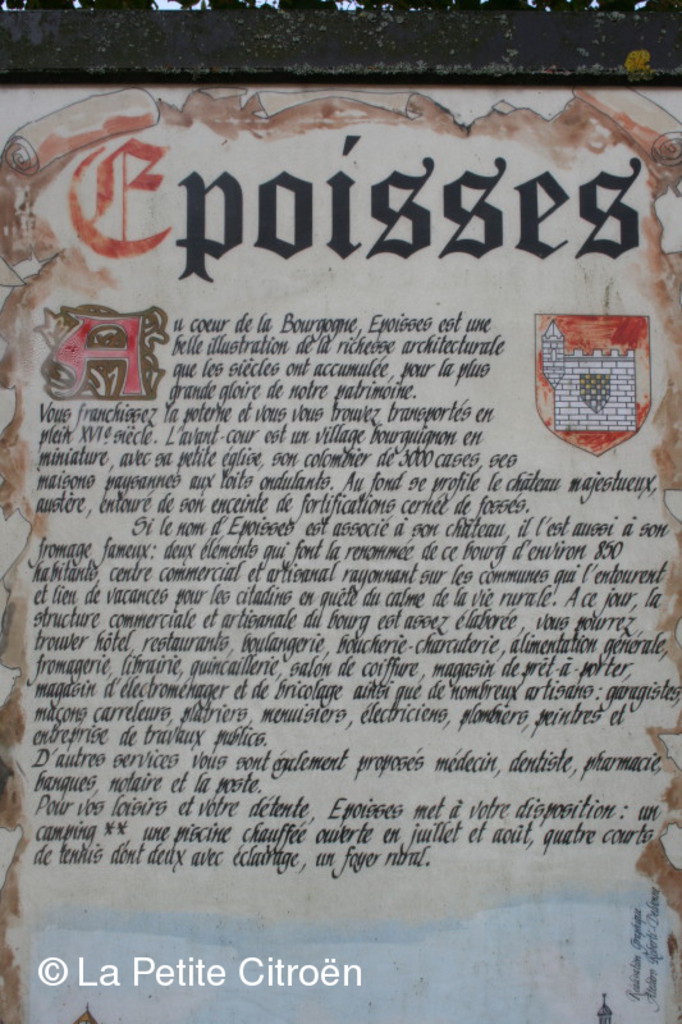 Epoisses
Au coeur de la Bourgogne, Epoisses est une
belle illustration de la richesse architecturale
que les siècles ont accumulée, pour la plus
grande gloire de notre patrimoine.
Vous franchissez la poterne et vous vous trouvez transportés en
plein XVIe siècle. L'avant-cour est un village bourguignon en
miniature, avec sa petite église, son colombier de 3000 cases, ses
maisons paysannes aux toits ondulants. Au fond se profile le château majestueux,
austère, entouré de son enceinte de fortifications cernée de fossés.
Si le nom d'Epoisses est associé à son château, il l'est aussi à son
fromage fameux : deux éléments qui font la renommée de ce bourg d'environ 850
habitants, centre commercial et artisanal rayonnant sur les communes qui l'entourent
et lieu de vacances pour les citadins en quête du calme de la vie rurale. A ce jour, la
structure commerciale et artisanale du bourg est assez élaborée, vous pourrez
trouver hôtel, restaurants, boulangerie, boucherie-charcuterie, alimentation générale,
fromagerie, librairie, quincaillerie, salon de coiffure, magasin de prêt-à-porter,
magasin d'électroménager et de bricolage ainsi que de nombreux artisans : garagistes,
maçons carreleurs, plâtriers, menuisiers, électriciens, plombiers, peintres et
entreprise de travaux publics.
D'autres services vous sont également proposés médecin, dentiste, pharmacie,
banques, notaire et la poste.
Pour vos loisirs et votre détente, Epoisses met à votre disposition : un
camping ** une piscine chauffée ouverte en juillet et août, quatre courts
de tennis dont deux avec éclairage, un foyer rural.
Réalisation Graphique
© La Petite Citroën